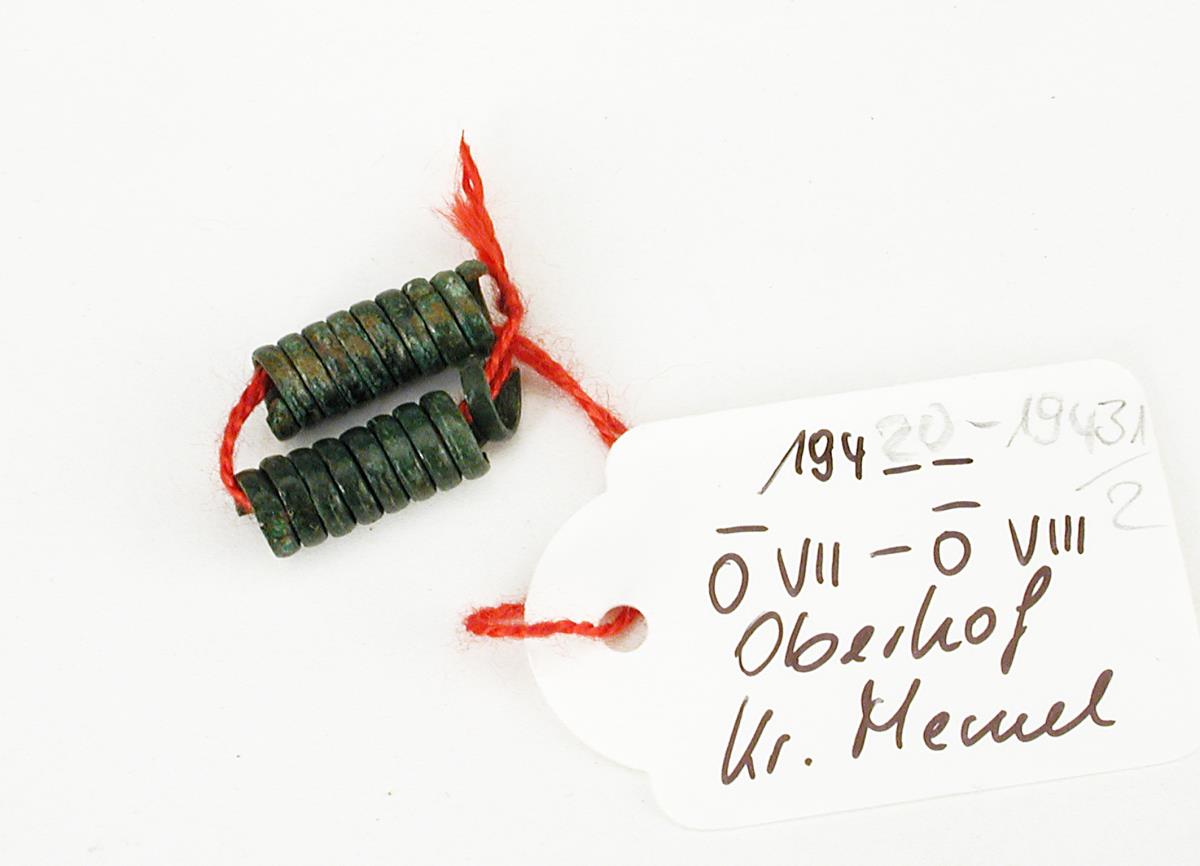 194 20 - 19431
2
Ō VII – Ō VIII
Oberhof
Kr. Memel